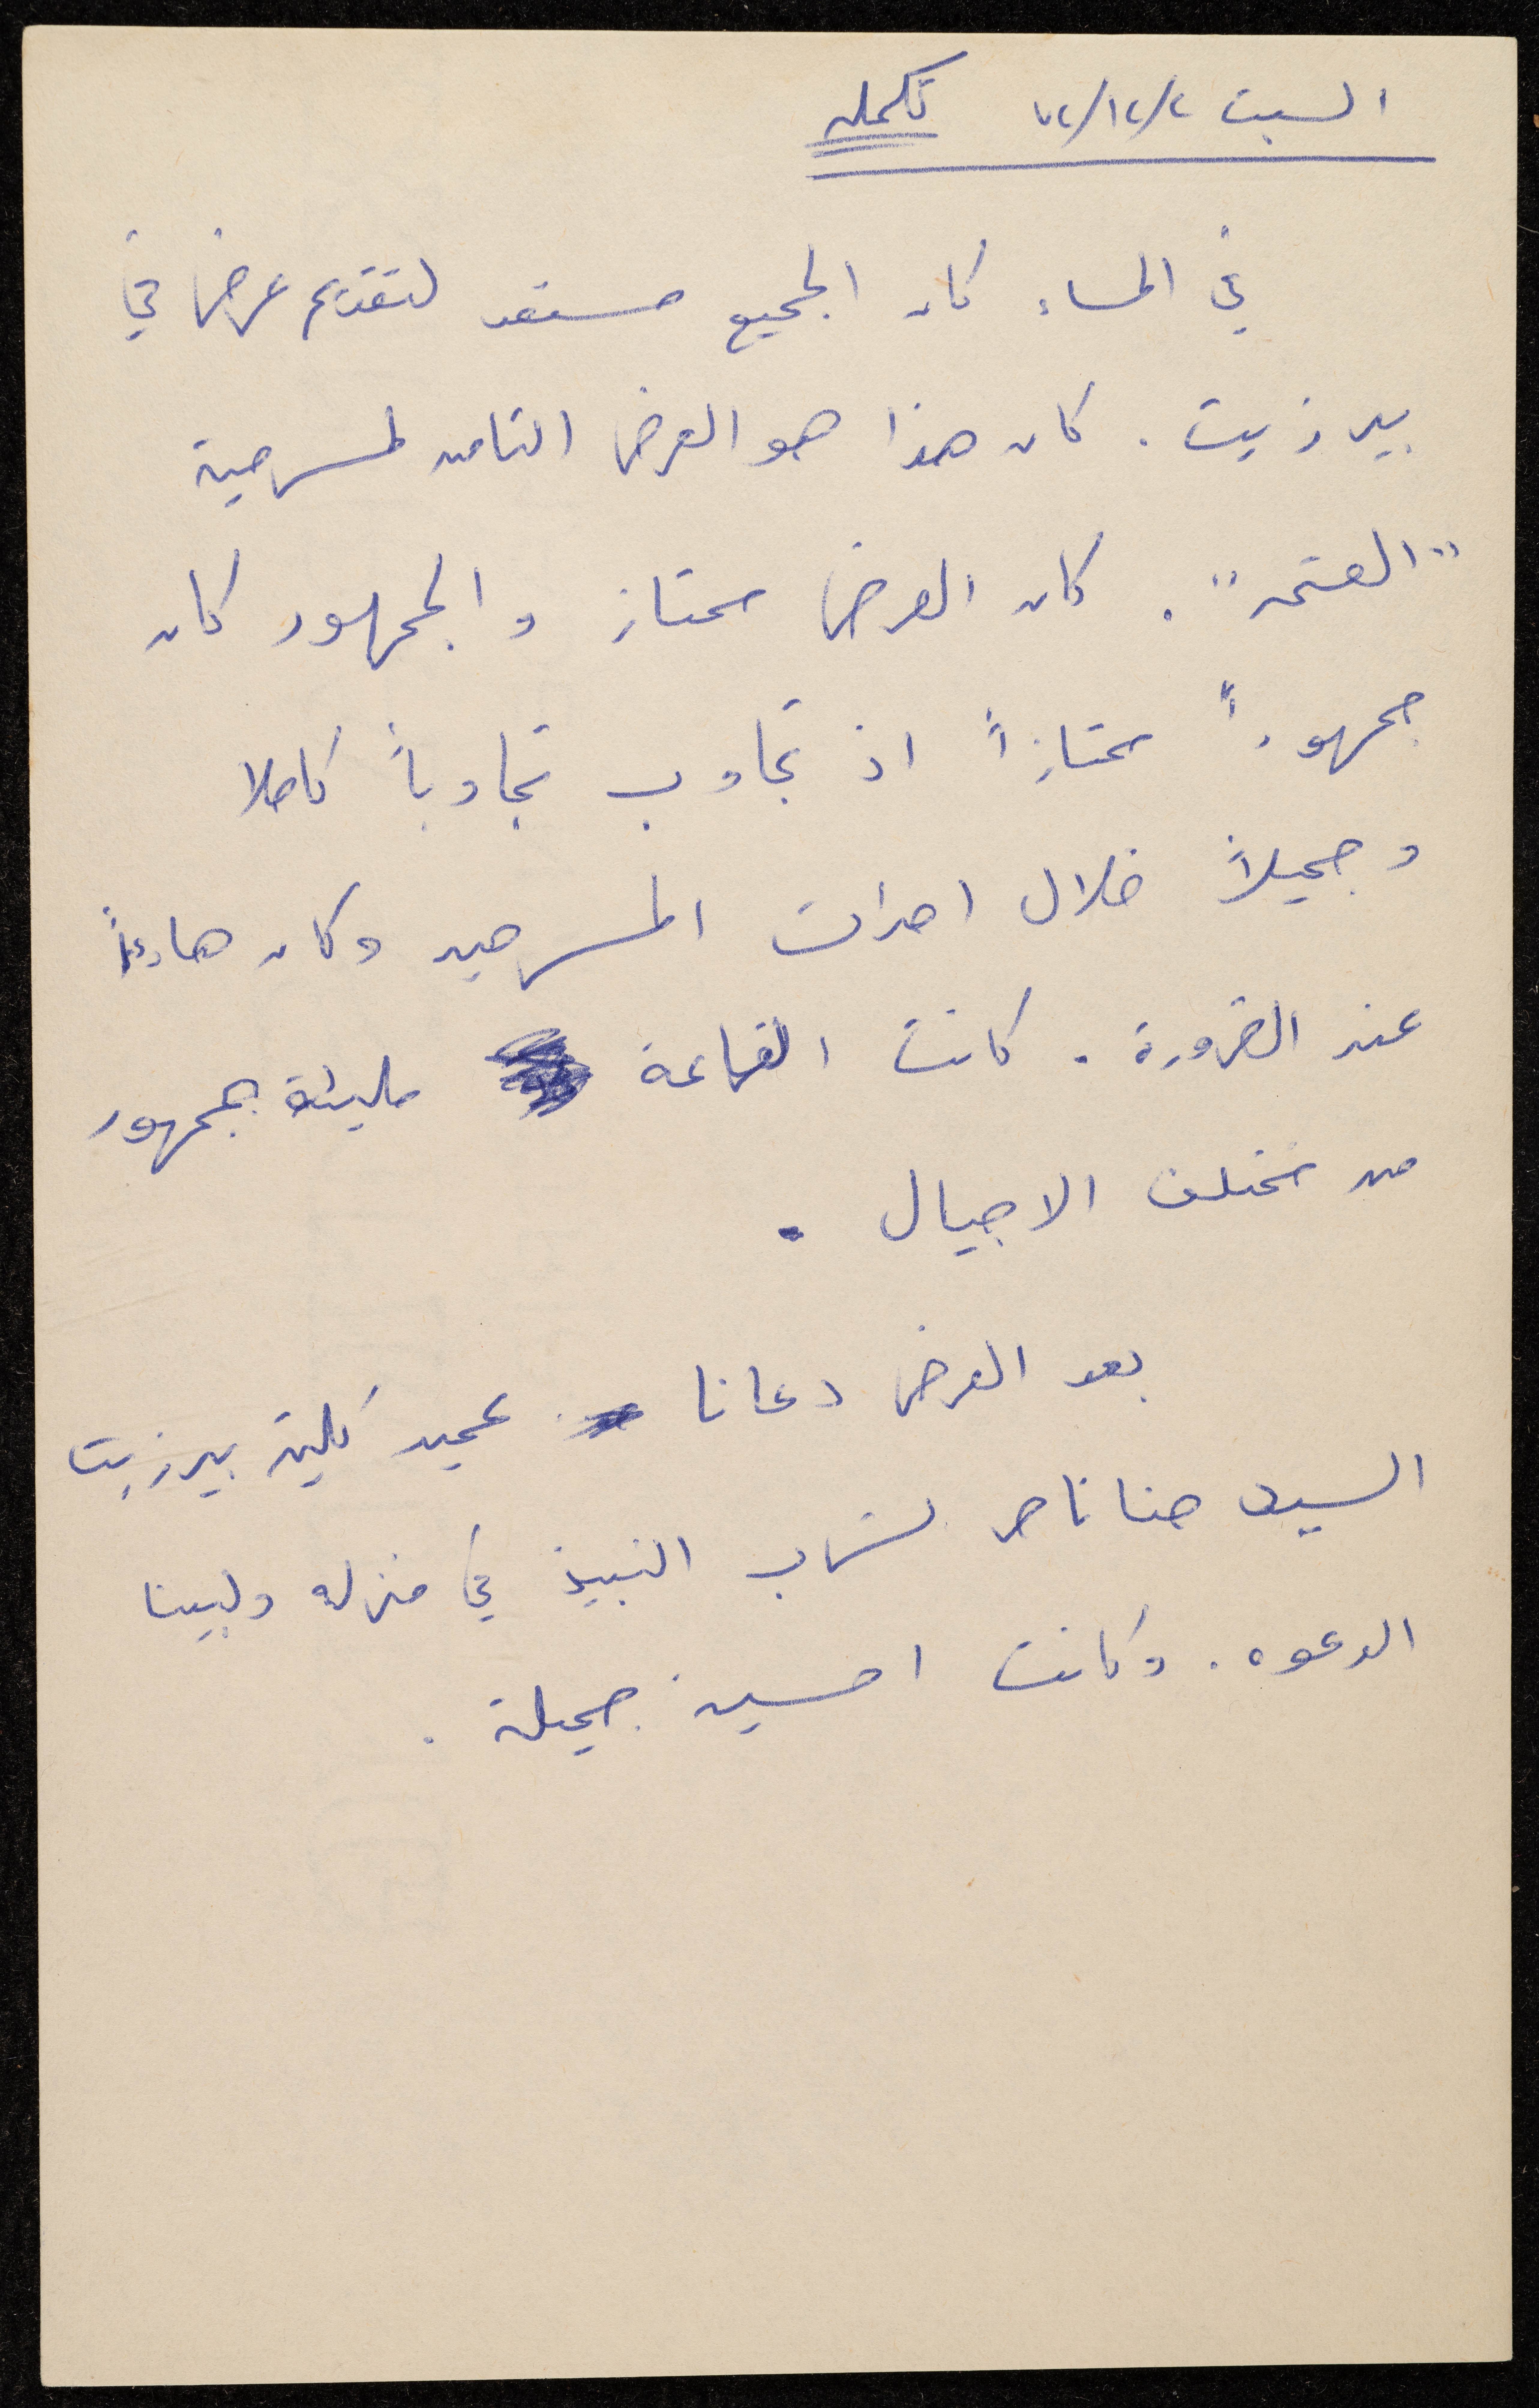 السبت ٧٢/١٢/٢ تكمله
في المساء كان الجميع مستعد لتقديم عرض في
بير زيت. كان هذا هو العرض الثامن لمسرحية
"العتمه". كان العرض ممتاز والجمهور كان
جمهوراً ممتازاً اذ تجاوب تجاوباً كاملا
وجميلاً خلال احداث المسرحيه وكان هادئاً
عند الضرورة. كانت القاعة مليئة بجمهور
من مختلف الاجيال.
بعد العرض دعانا عميد كلية بيرزيت
السيد حنا ناصر لشرب النبيذ في منزله ولبينا
الدعوه. وكانت امسية جميلة.